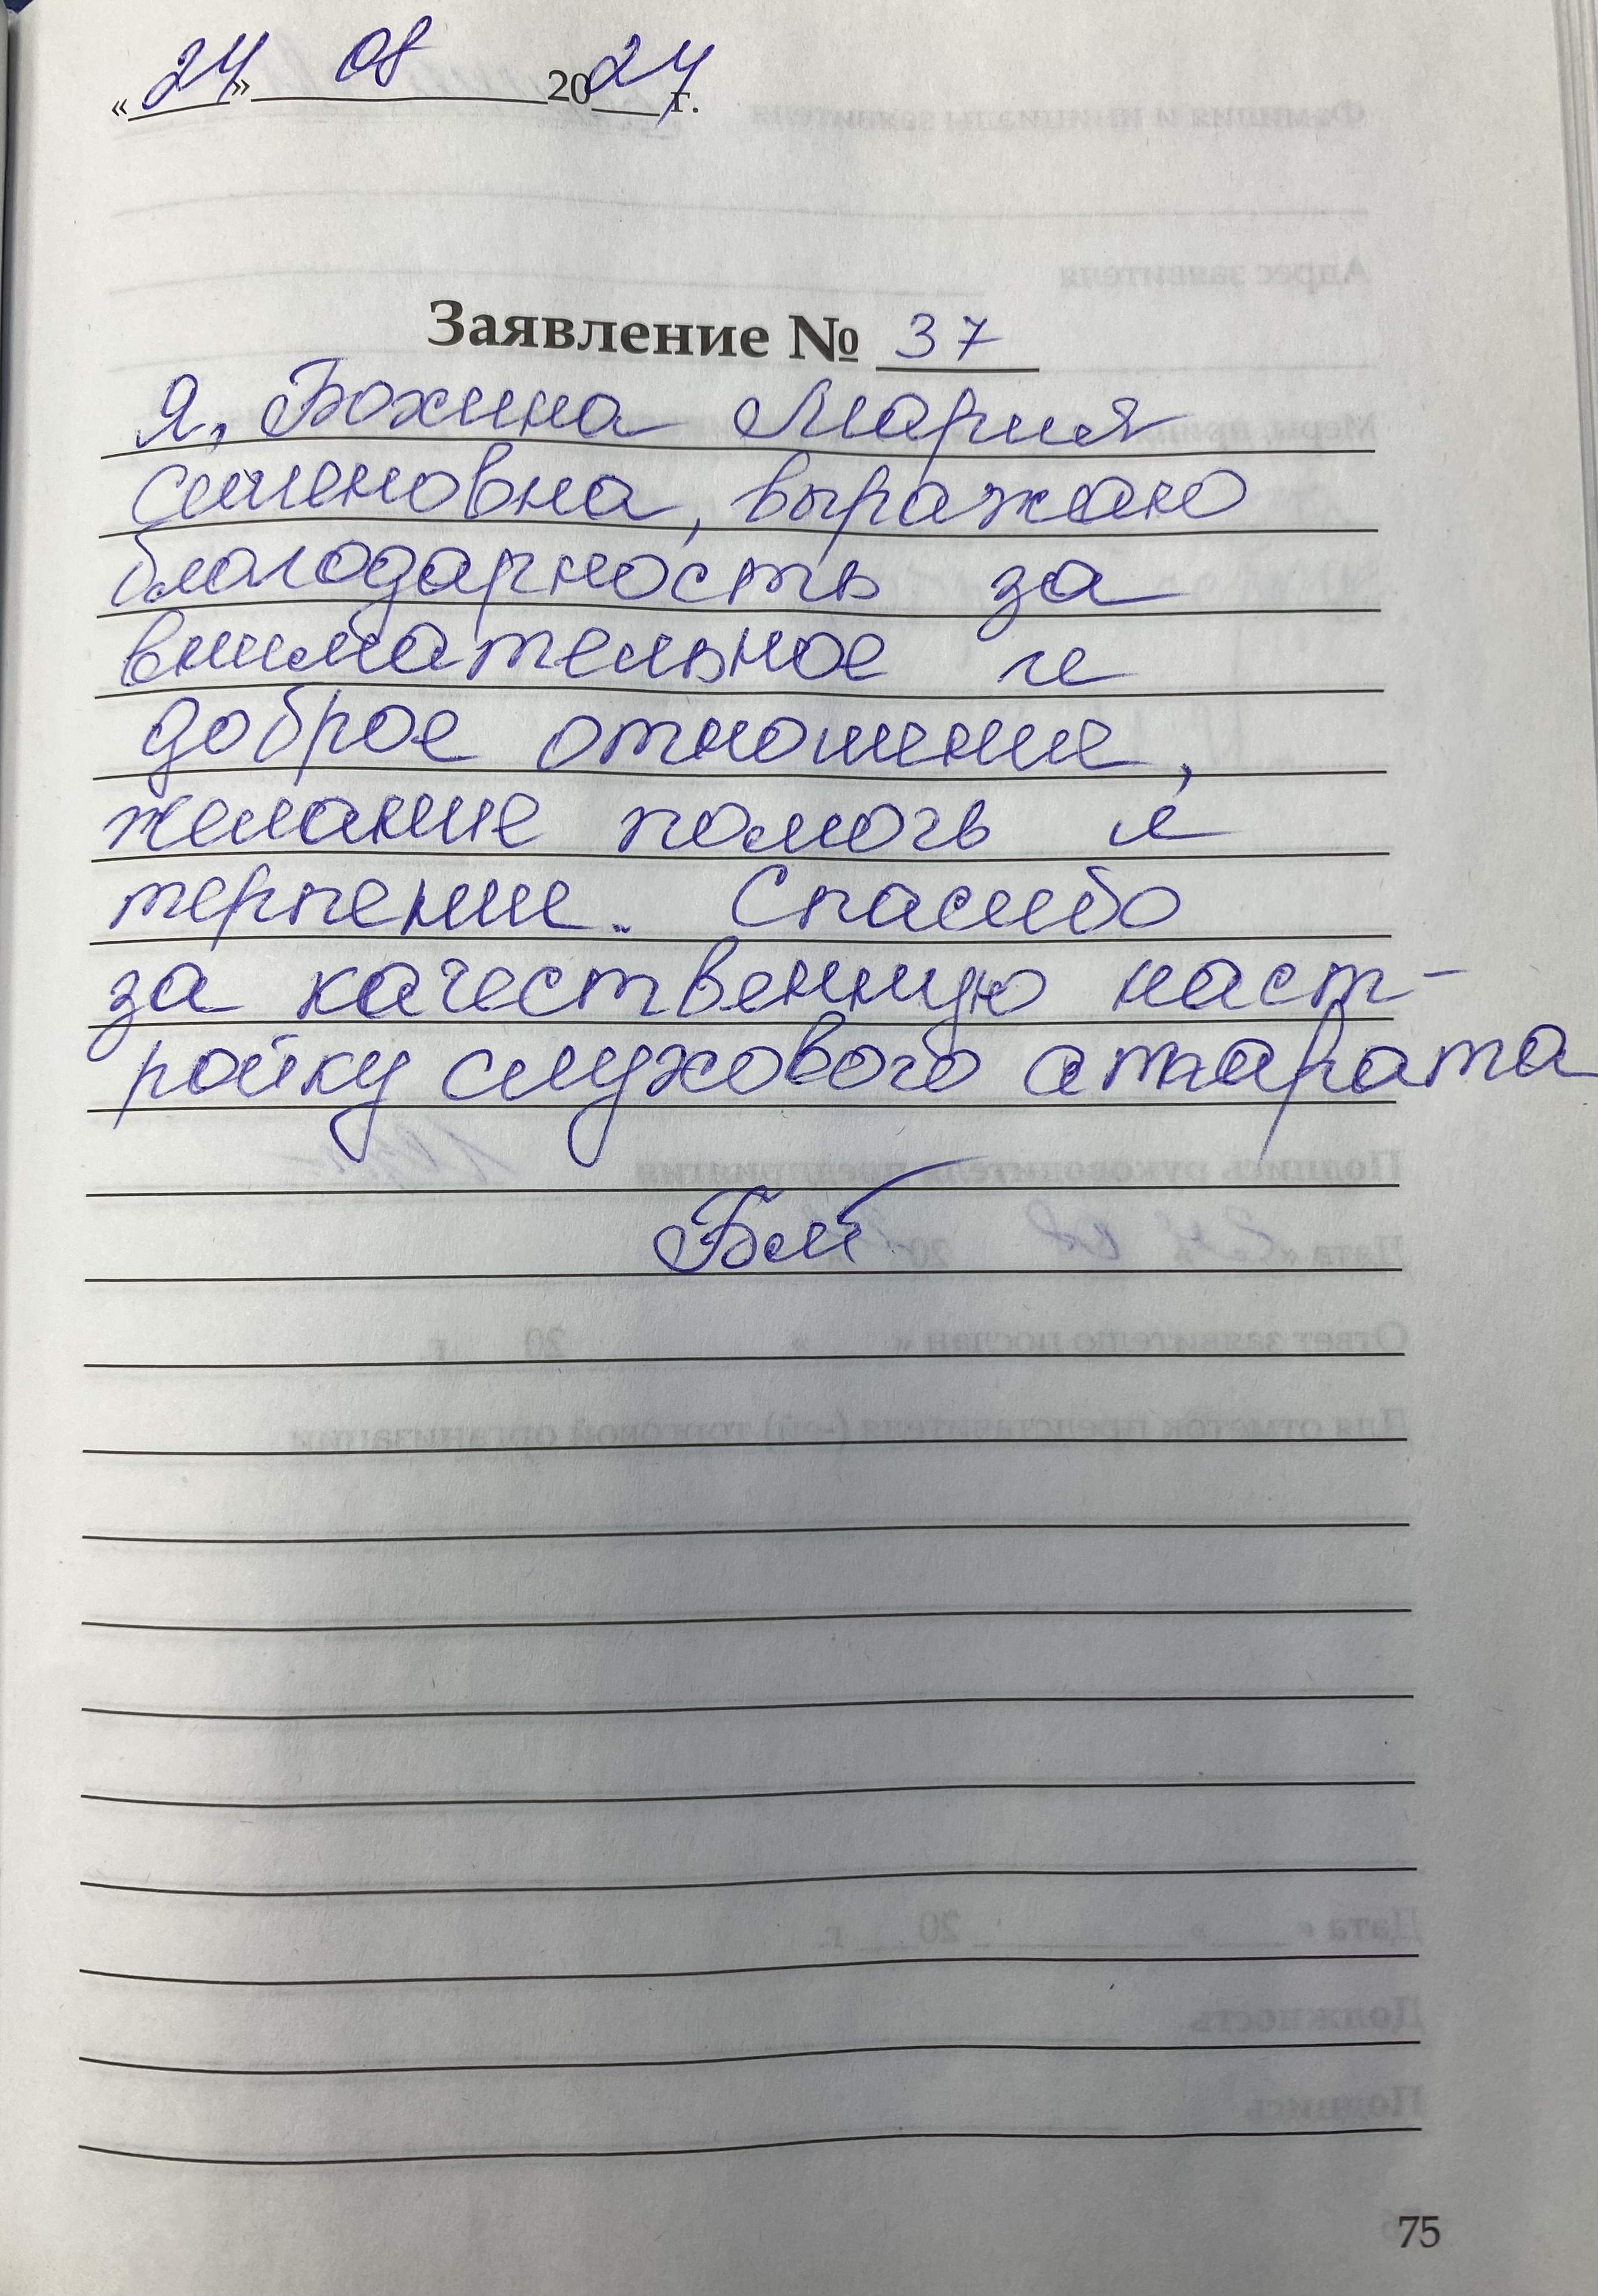 «24» 08 2024 г.
Заявление № 37
Я, Бохина Мария
Семеновна, выражаю
благодарность за
внимательное и
доброе отношение,
желание помочь и
терпение. Спасибо
за качественную наст-
ройку слухового аппарата
75